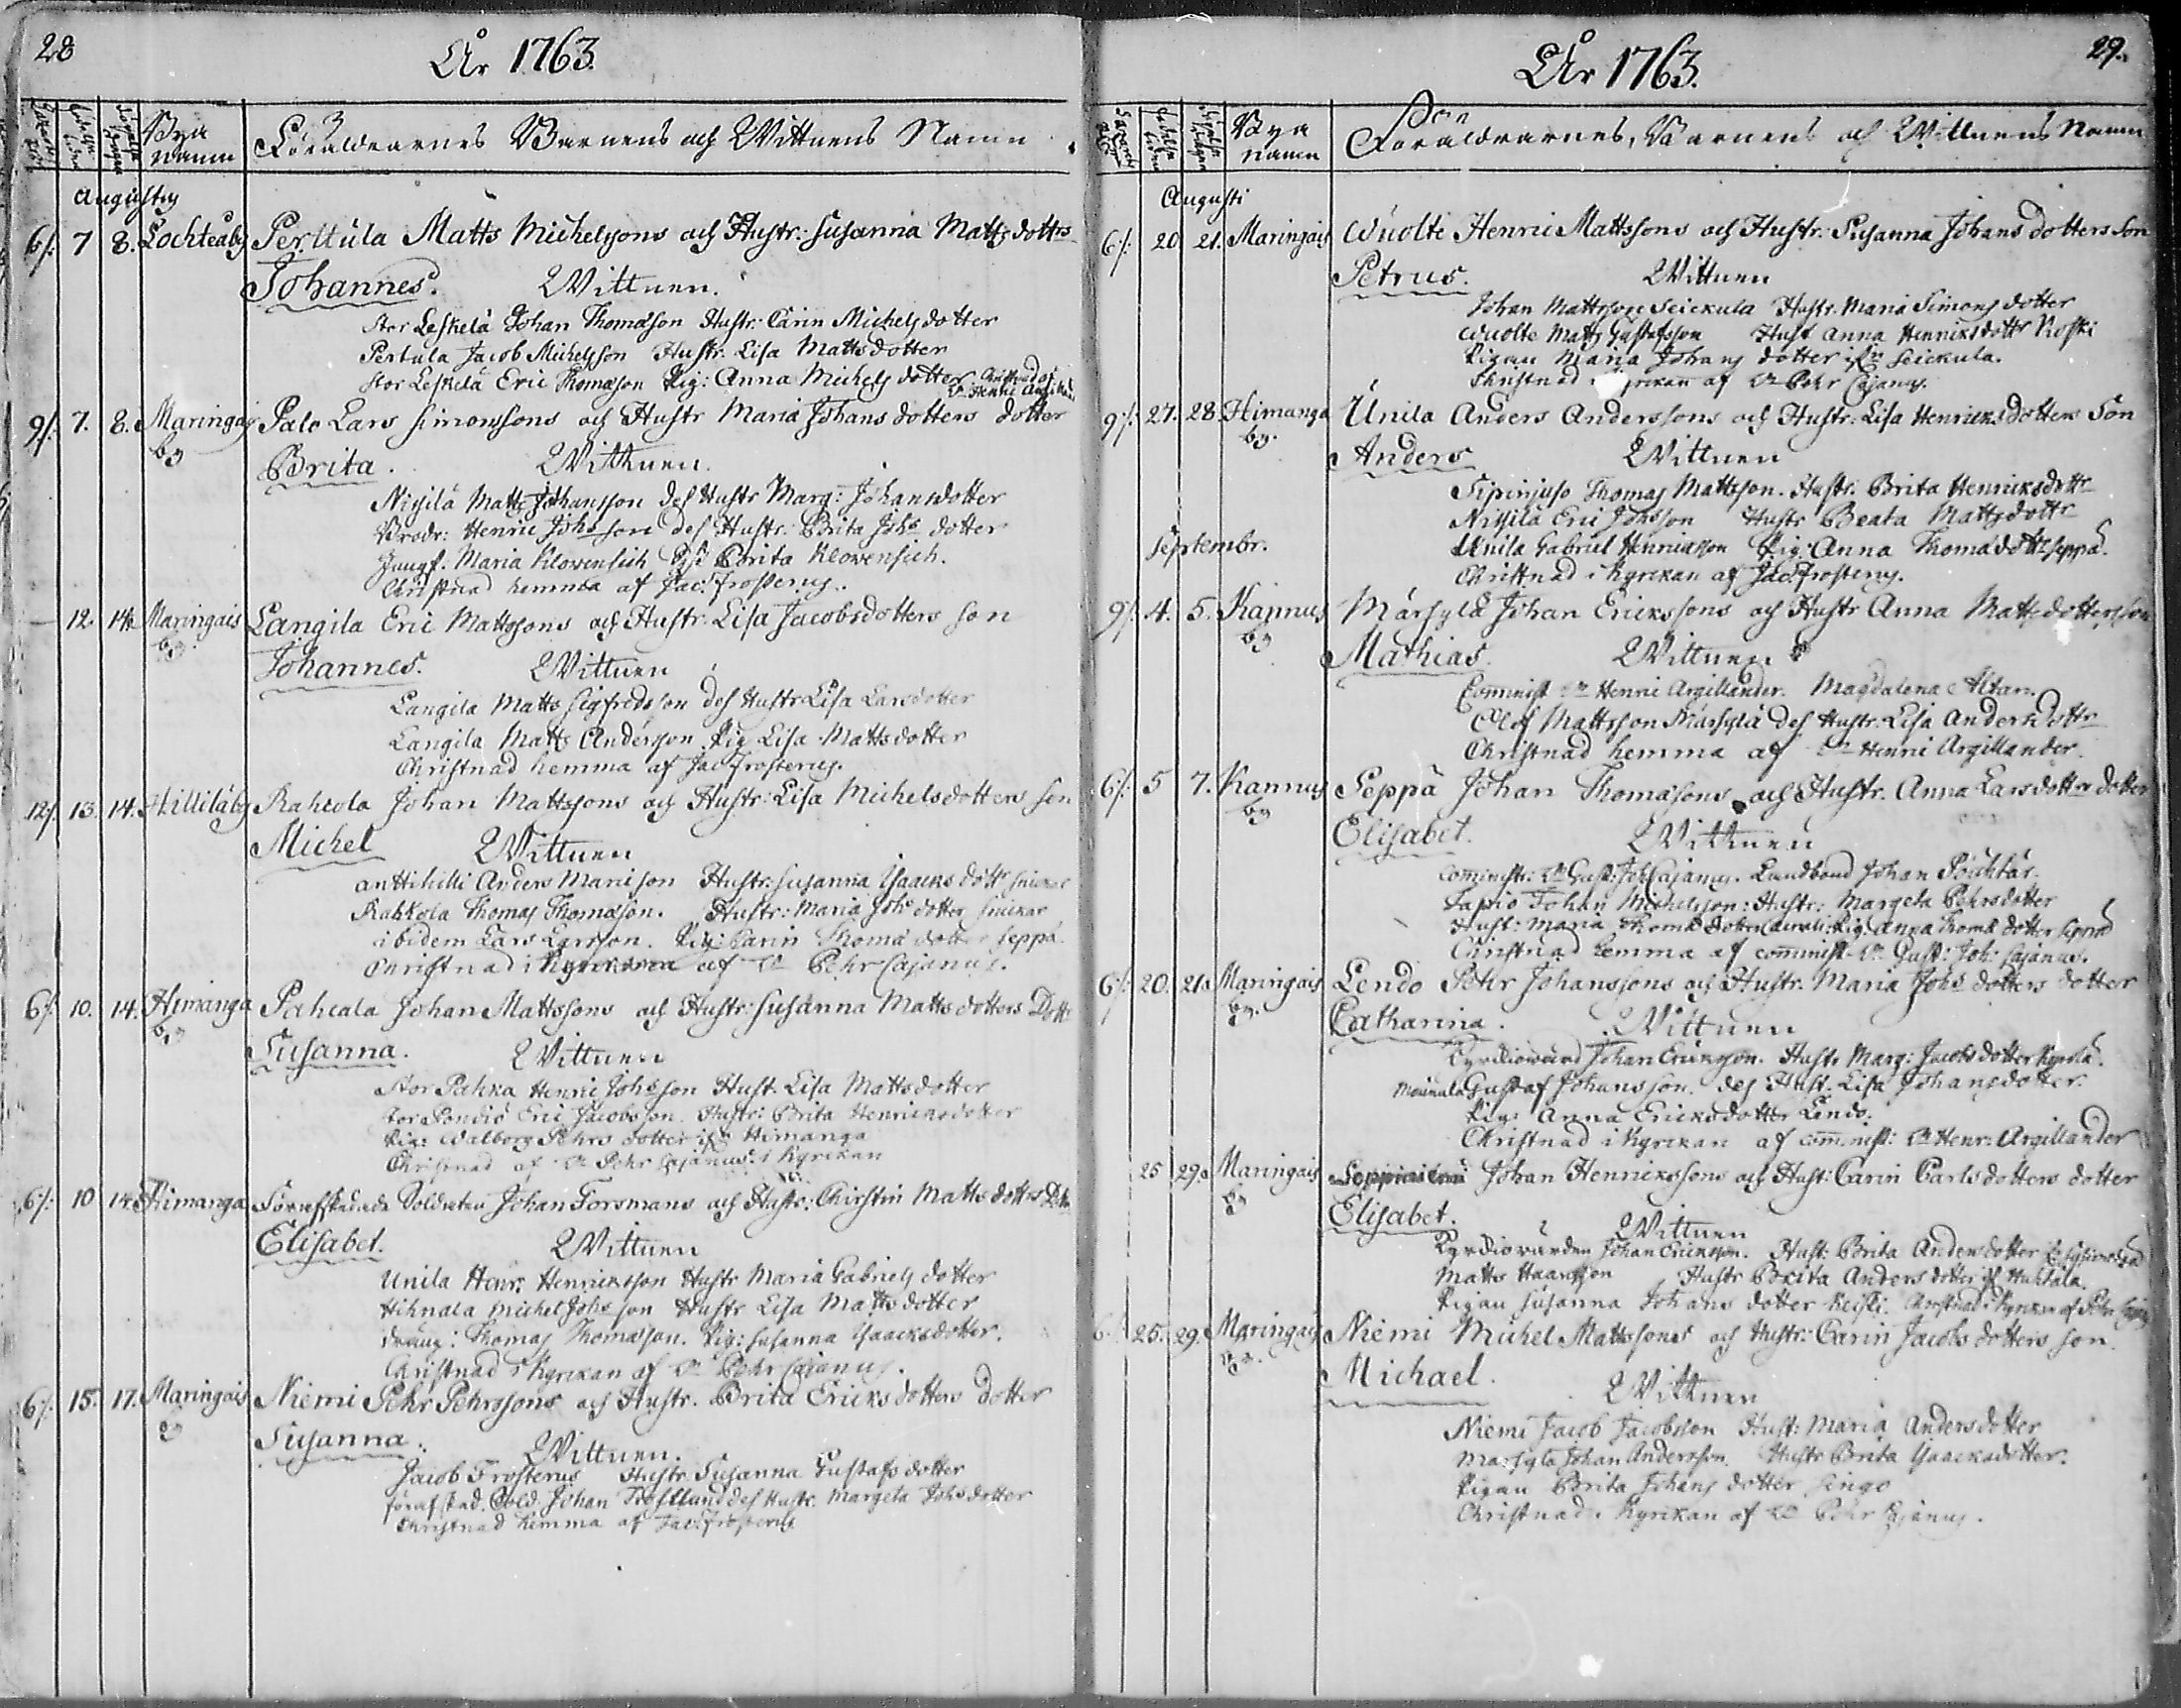 28
År 1763.
Bya namn
Föräldrarnes Barnens och Wittnens Namn
Augustus
6/. 7 8. Lochteåby Perttula Matts Michelssons och Hustr: Susanna Matts dotters
Johannes. Wittnen.
Stor Leskelä Johan Thomasson Hustr: Carin Michels dotter
Pertula Jacob Michelsson Hustr. Lisa Matts dotter
Stor Leskelä Eric Thomasson Pig: Anna Michels dotter
9/. 7. 8. Maringais by Palo Lars Simonssons och Hustr Maria Johans dotters dotter
Brita. Wittnen.
Nisilä Matts Johansson des Hustr Marg: Johansdotter
Brodr: Henric Johsson des Hustr: Brita Johs dotter
Jungf. Maria Klowensich Brita Klowensich.
Christnad hemma af Jac: Frosterus.
12. 14. Maringais by Langila Eric Mattssons och Hustr: Lisa Jacobsdotters son
Johannes. Wittnen
Langila Matts Sigfredsson des Hustr Lisa Larsdotter
Langila Matts Andersson Pig Lisa Mattsdotter
Christnad hemma af Jac Frosterus.
12/. 13. 14. Hilliläby Rahcola Johan Mattssons och Hustr: Lisa Michelsdotters son
Michel Wittnen
Anttihilli Anders Mariſson Hustr: Susanna Ysaacks dottr
Rahkola Thomas Thomasson. Hustr: Maria Johs dotter
ibidem Lars Larsson. Pig: Carin Thomæ dotter Seppä.
Christnad i Kyrckan af Pehr Cajanus.
6/. 10. 14. Himanga by Pahcala Johan Mattssons och Hustr: Susanna Matts dotters Dottr
Susanna. Wittnen
Stor Pahka Henric Johsson Hust. Lisa Mattsdotter
Stor Pondio Eric Jacobsson. Hustr: Brita Henricksdotter
Pig: Walborg Pehrs dotter Himanga
Christnad af Pehr Cajanus i Kyrckan
6/. 10 14. Himanga Förafskedade Soldaten Johan Forsmans och Hustr: Christin Matts dotters
Elisabet. Wittnen
Unila Henr: Henricksson Hustr Maria Gabriels dotter
Hihnala Michel Johsson Hustr Lisa Matts dotter
Dräng: Thomas Thomasson. Pig: Susanna Ysaacksdotter.
Christnad i Kyrckan af Pehr Cajanus.
6/. 15. 17. Maringais by Niemi Pehr Pehrssons och Hustr. Brita Ericks dotters dotter
Susanna. Wittnen.
Jacob Frosterus Hustr Susanna Gustafs dotter
förafsked. Sold. Johan des Hustr. Margeta Johsdotter
Christnad hemma af Jac: Frosterus
29.
År 1763.
Bya namn
Föräldrarnes, Barnens och Wittnens Namn
Augusti
6/. 20 21. Maringais Wuolte Henric Mattssons och Hustr: Susanna Johans dotters son
Petrus. Wittnen
Johan Mattsson Seickula Hustr. Maria Simons dotter
Wuolte Matts Gustafsson Hust Anna Henriksdottr Koski
Pigan Maria Johans dotter Seickula.
Christnad af Pehr Cajanus.
9/. 27. 28. Himanga by. Unila Anders Anderssons och Hustr: Lisa Henricks dotters Son
Anders Wittnen
Thomas Mattsson. Hustr. Brita Henricksdottr
Nisilä Eric Johsson Hustr Beata Mattsdottr
Unila Gabriel Henricksson Pig: Anna Thomædottr Seppä.
Christnad i Kyrckan af Jac Frosterus.
Septembr.
9/. 4. 5. Kannus by Märsylä Johan Erickssons och Hustr Anna Matts dotters son
Mathias. Wittnen
Comminist Henric Argillander. Magdalena Altan.
Olof Mattsson Märsylä des Hustr: Lisa Andersdottr
Christnad hemma af Henric Argillander.
6/. 5 7. Kannus by Seppä Johan Thomassons och Hustr. Anna Lars dotters dotter
Elisabet. Wittnen
Comministr: Gust: Joh: Cajanus. Landbond Johan
Johan Michelsson: Hustr: Margeta Pehrsdotter
Hust: Maria Thomæ dotter Pig: Anna Thomæ dotter Seppä
Christnad hemma af comminist Gust: Joh: Cajanus.
6/. 20. 21. Maringais by. Lendo Pehr Johanssons och Hustr. Maria Johs dotters dotter
Catharina. Wittnen
Johan Ericksson. Hustr Marg: Jacobs dotter
Gustaf Johansson. des Hust. Lisa Johansdotter.
Pig: Anna Ericksdotter Lendo.
Christnad i Kyrckan af comminist: Henr: Argillander
25 29. Maringais by Johan Henrickssons och Hust: Carin Carls dotters dotter
Elisabet. Wittnen
Johan Ericksson. Hust: Brita Anders dotter
Matts Hansson Hustr Brita Anders dotter Huhtala.
Pigan Susanna Johans dotter Keiski. Christnad i Kyrckan af Pehr
6/. 25. 29. Maringais by. Niemi Michel Mattssons och Hustr: Carin Jacobs dotters son
Michael. Wittnen
Niemi Jacob Jacobsson Hust: Maria Andersdotter
Märsylä Johan Andersson. Hustr Brita Ysaacksdotter.
Pigan Brita Johans dotter Singo
Christnad i Kyrckan af Pehr Cajanus.